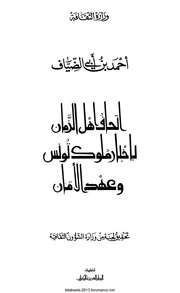 وزارة الثقافة
أحمد بن أبي الضياف
إتحاف أهل الزمان
بأخبار ملوك تونس
وعهد الأمان
تحقيق لجنة من وزارة الشؤون الثقافية
الدار العربية للكتاب
kitabweb-2013.forumaroc.net